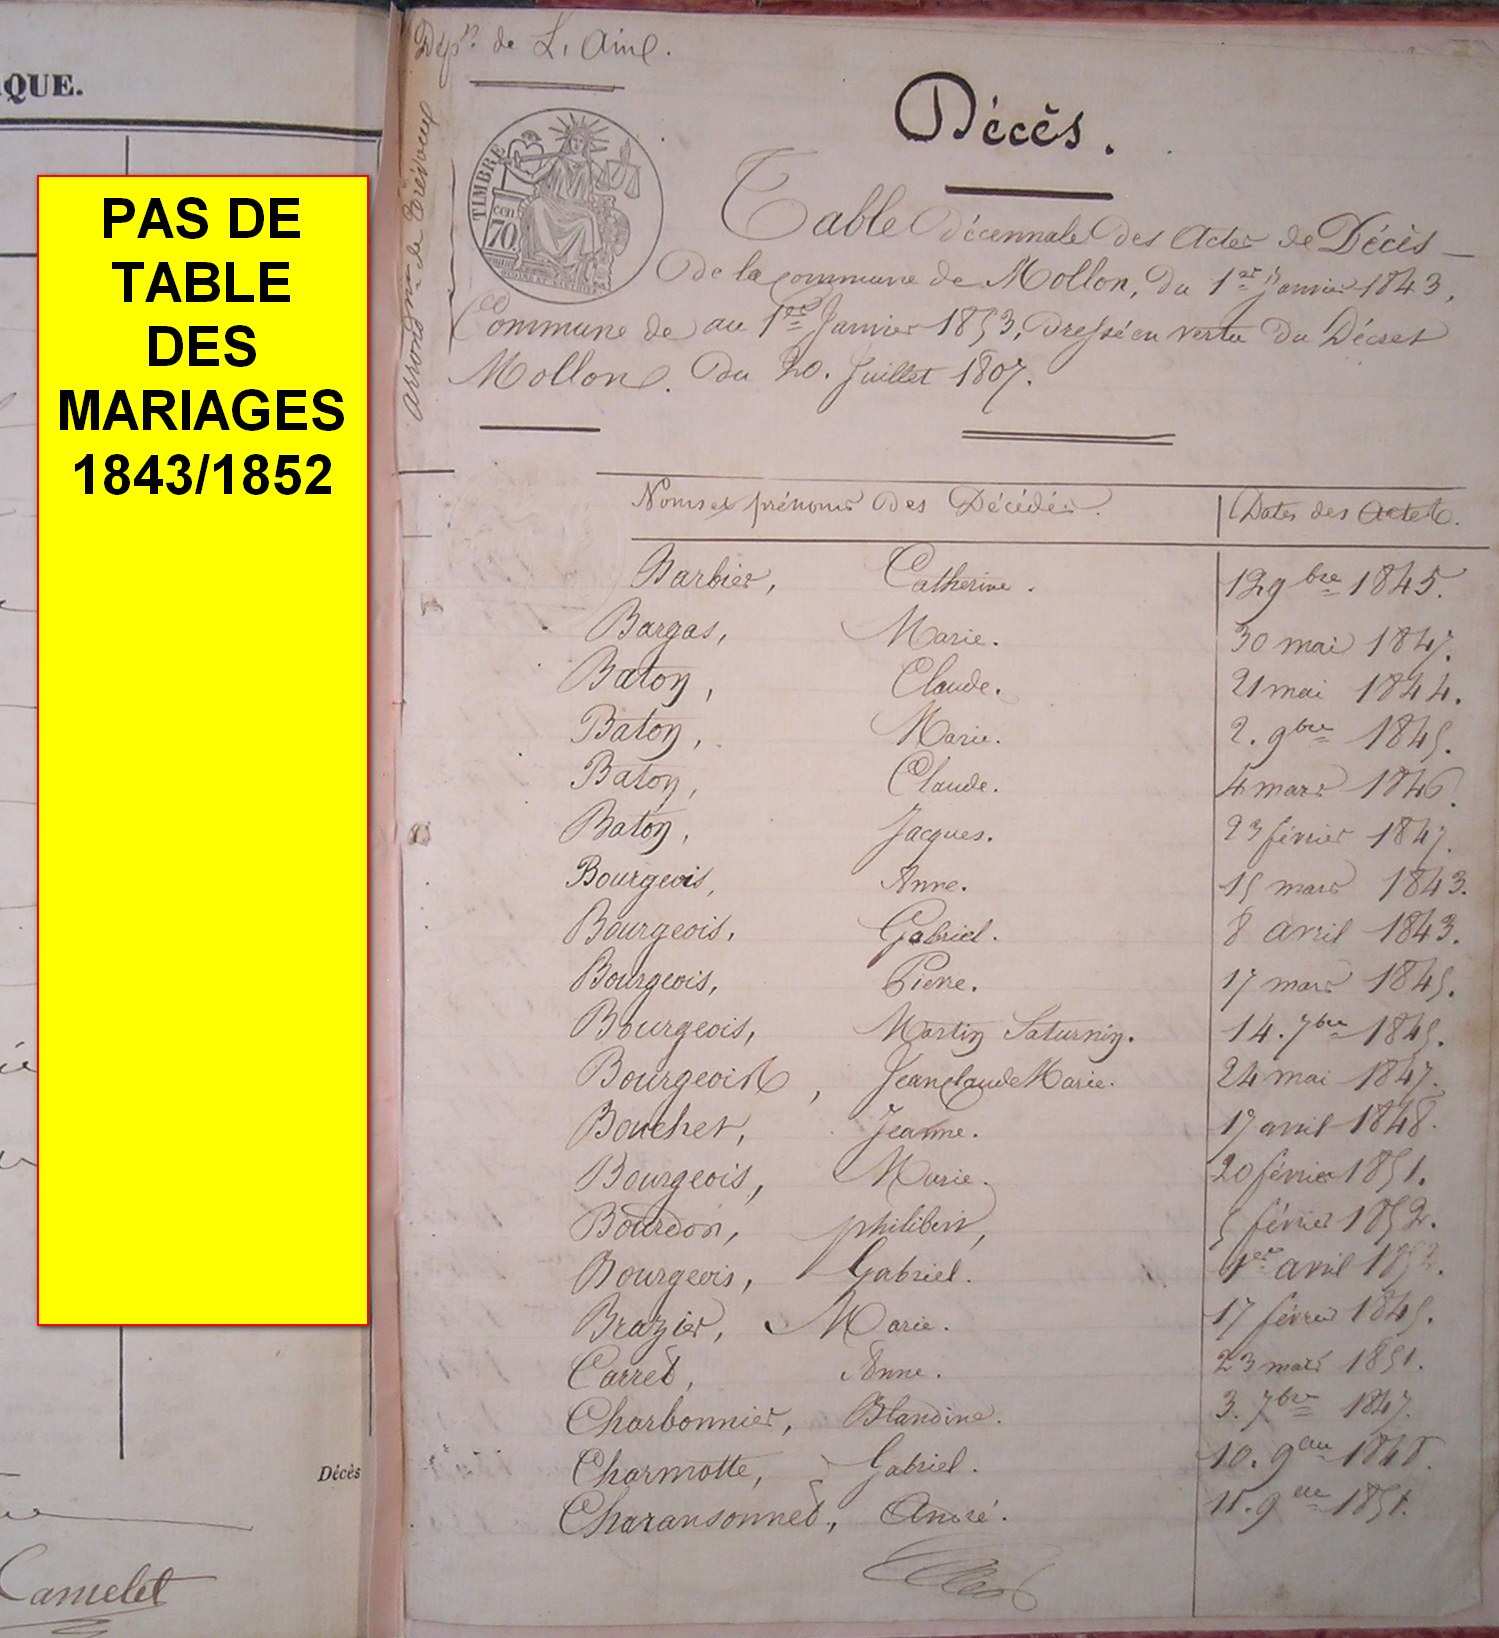 QUE.
PAS DE
TABLE
DES
MARIAGES
1843/1852
Décès
Camelet
Dépt. de L'Ain.
arrondt. de Trévoux
Commune de
Mollon.
TIMBRE
70
Décès.
Table Décennale des Actes de Décès
de la commune de Mollon, du 1er Janvier 1843,
au 1er Janvier 1853, dressé en vertu du Décret
du 20. Juillet 1807.
Noms et prénoms des Décédés. Dates des Actes.
Barbier, Catherine. 12 9bre 1845.
Bargas, Marie. 30 mai 1847.
Baton, Claude. 21 mai 1844.
Baton, Marie. 2. 9bre 1845.
Baton, Claude. 4 mars 1846.
Baton, Jacques. 23 février 1847.
Bourgeois, Anne. 15 mars 1843.
Bourgeois, Gabriel. 8 avril 1843.
Bourgeois, Pierre. 17 mars 1845.
Bourgeois, Martin Saturnin. 14. 7bre 1845.
Bourgeois, Jean Claude Marie. 24 mai 1847.
Bouchet, Jeanne. 17 avril 1848.
Bourgeois, Marie. 20 février 1851.
Bourdon, philibert, 5 février 1852.
Bourgeois, Gabriel. 1er avril 1852.
Brazier, Marie. 17 février 1845.
Carret, Anne. 23 mars 1851.
Charbonnier, Blandine. 3. 7bre 1847.
Charmotte, Gabriel. 10. 9bre 1848.
Charansonnet, André. 11. 9bre 1851.